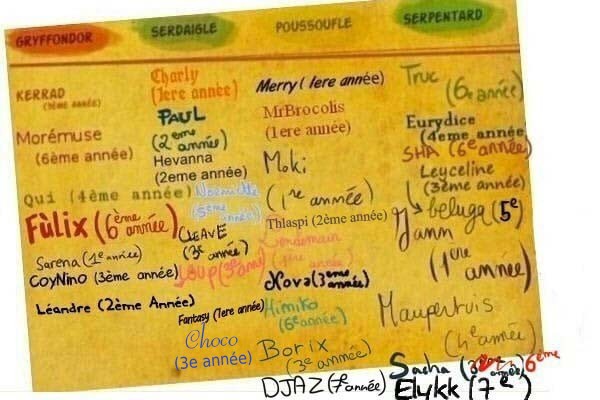 GRYFFONDOR
KERRAD
(3ème année)
Morémuse
(6ème année)
Qui (4ème année)
Fùlix (6ème année)
Sarena (1e année)
CoyNino (3ème année)
Léandre (2ème Année)
SERDAIGLE
Charly
(1ere année)
PAUL
(2eme année)
Hevanna
(2eme année)
(5ème année)
CLEAVE
(3e année)
LOUP (3e ann)
Fantasy (1ere année)
Choco
(3e année)
POUSSOUFLE
Merry (1ere année)
MrBrocolis
(1ere année)
Moki
(1re année)
Thlaspi (2ème année)
Lendemain
(1ère année)
Nova (3eme année)
Himiko
(6e année)
Borix
(3e année)
DJAZ (7e année)
SERPENTARD
Truc
(6e année)
Eurydice
(4eme année)
SHA (6e année)
Leyceline
(3ème année)
beluga (5e)
Yann
(1ere année)
Maupertuis
(4e année)
Sacha
6ème
Elykk (7e)